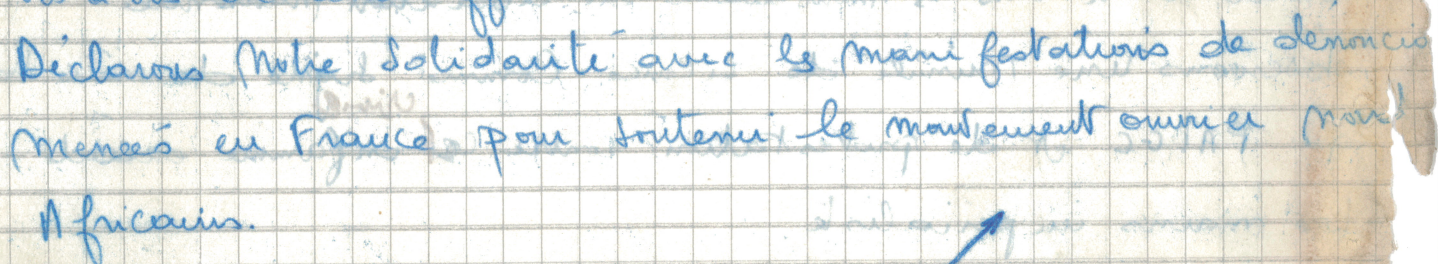 Déclarons Notre Solidarité avec les manifestations de dénoncia
menées en France pour soutenir le mouvement ouvrier nord
Africains.